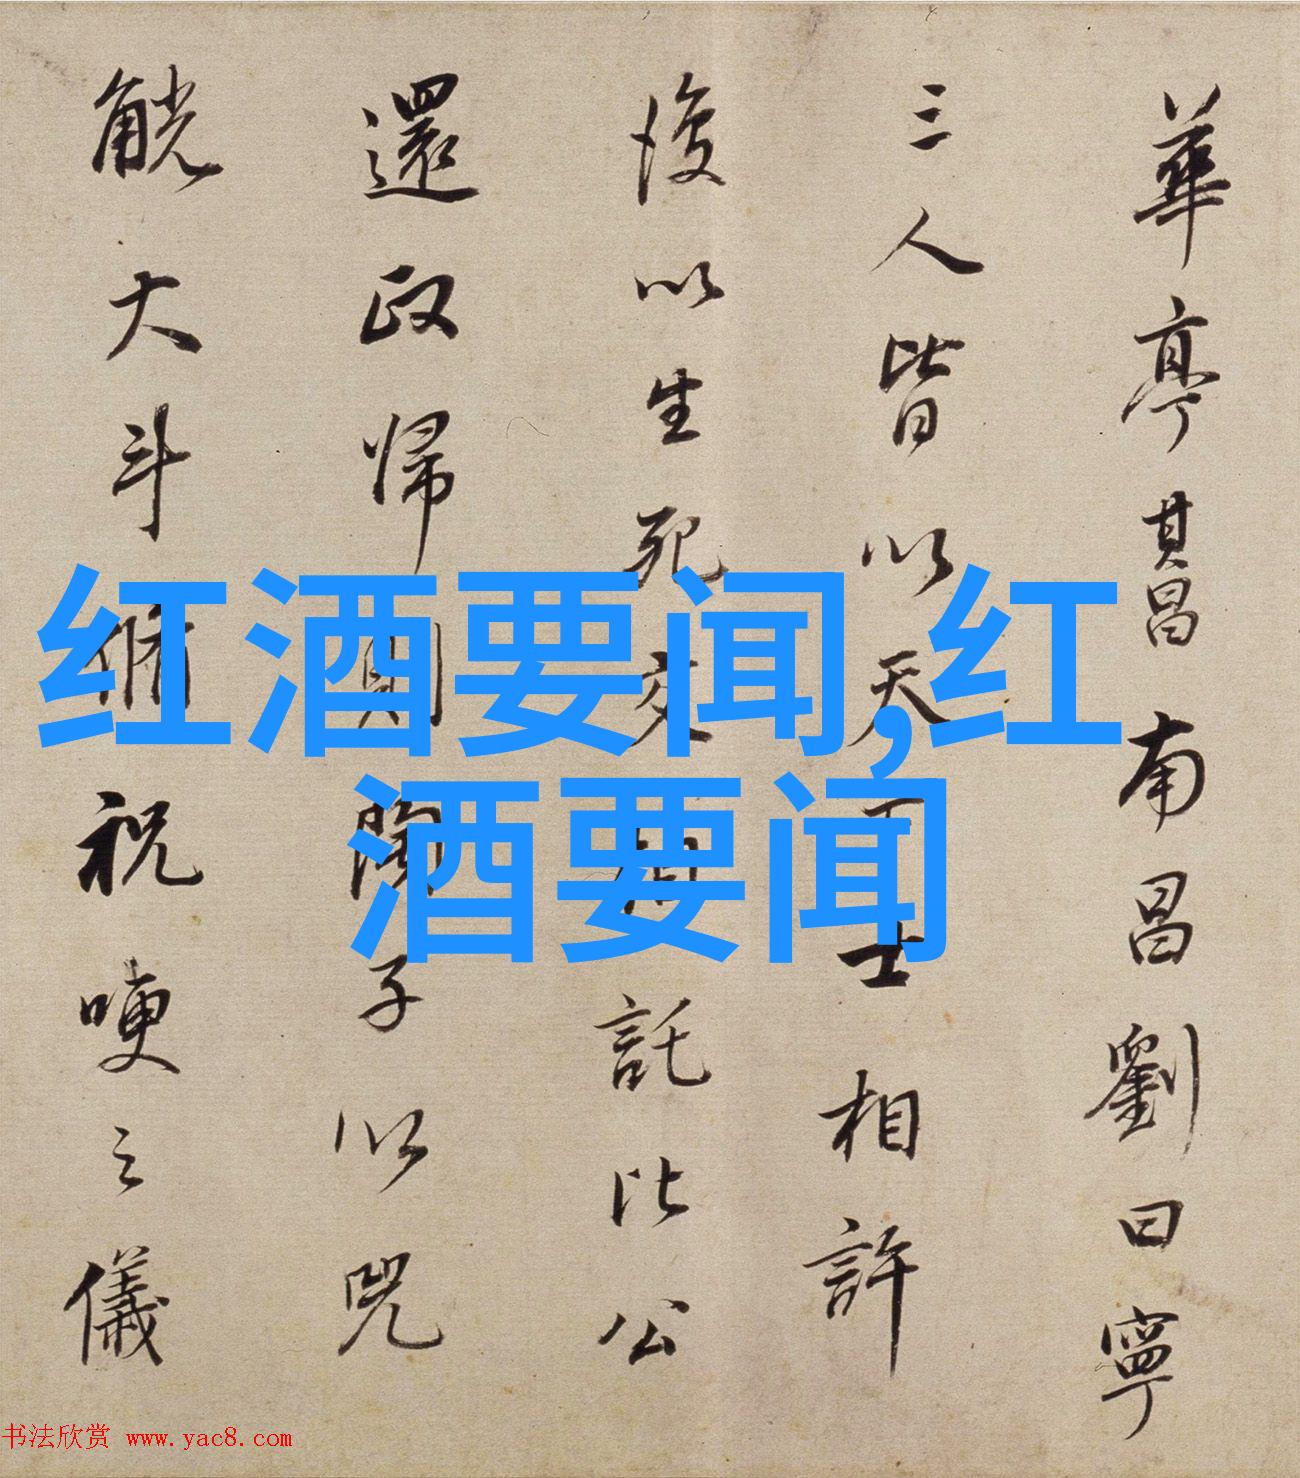 華亭其昌南昌劉曰寧
三人皆以天下士相許
後以生死交相託比公
還政歸則陶子以兕
觥大斗脩祝哽之儀
红酒要闻,红
酒要闻
书法欣赏 www.yac8.com